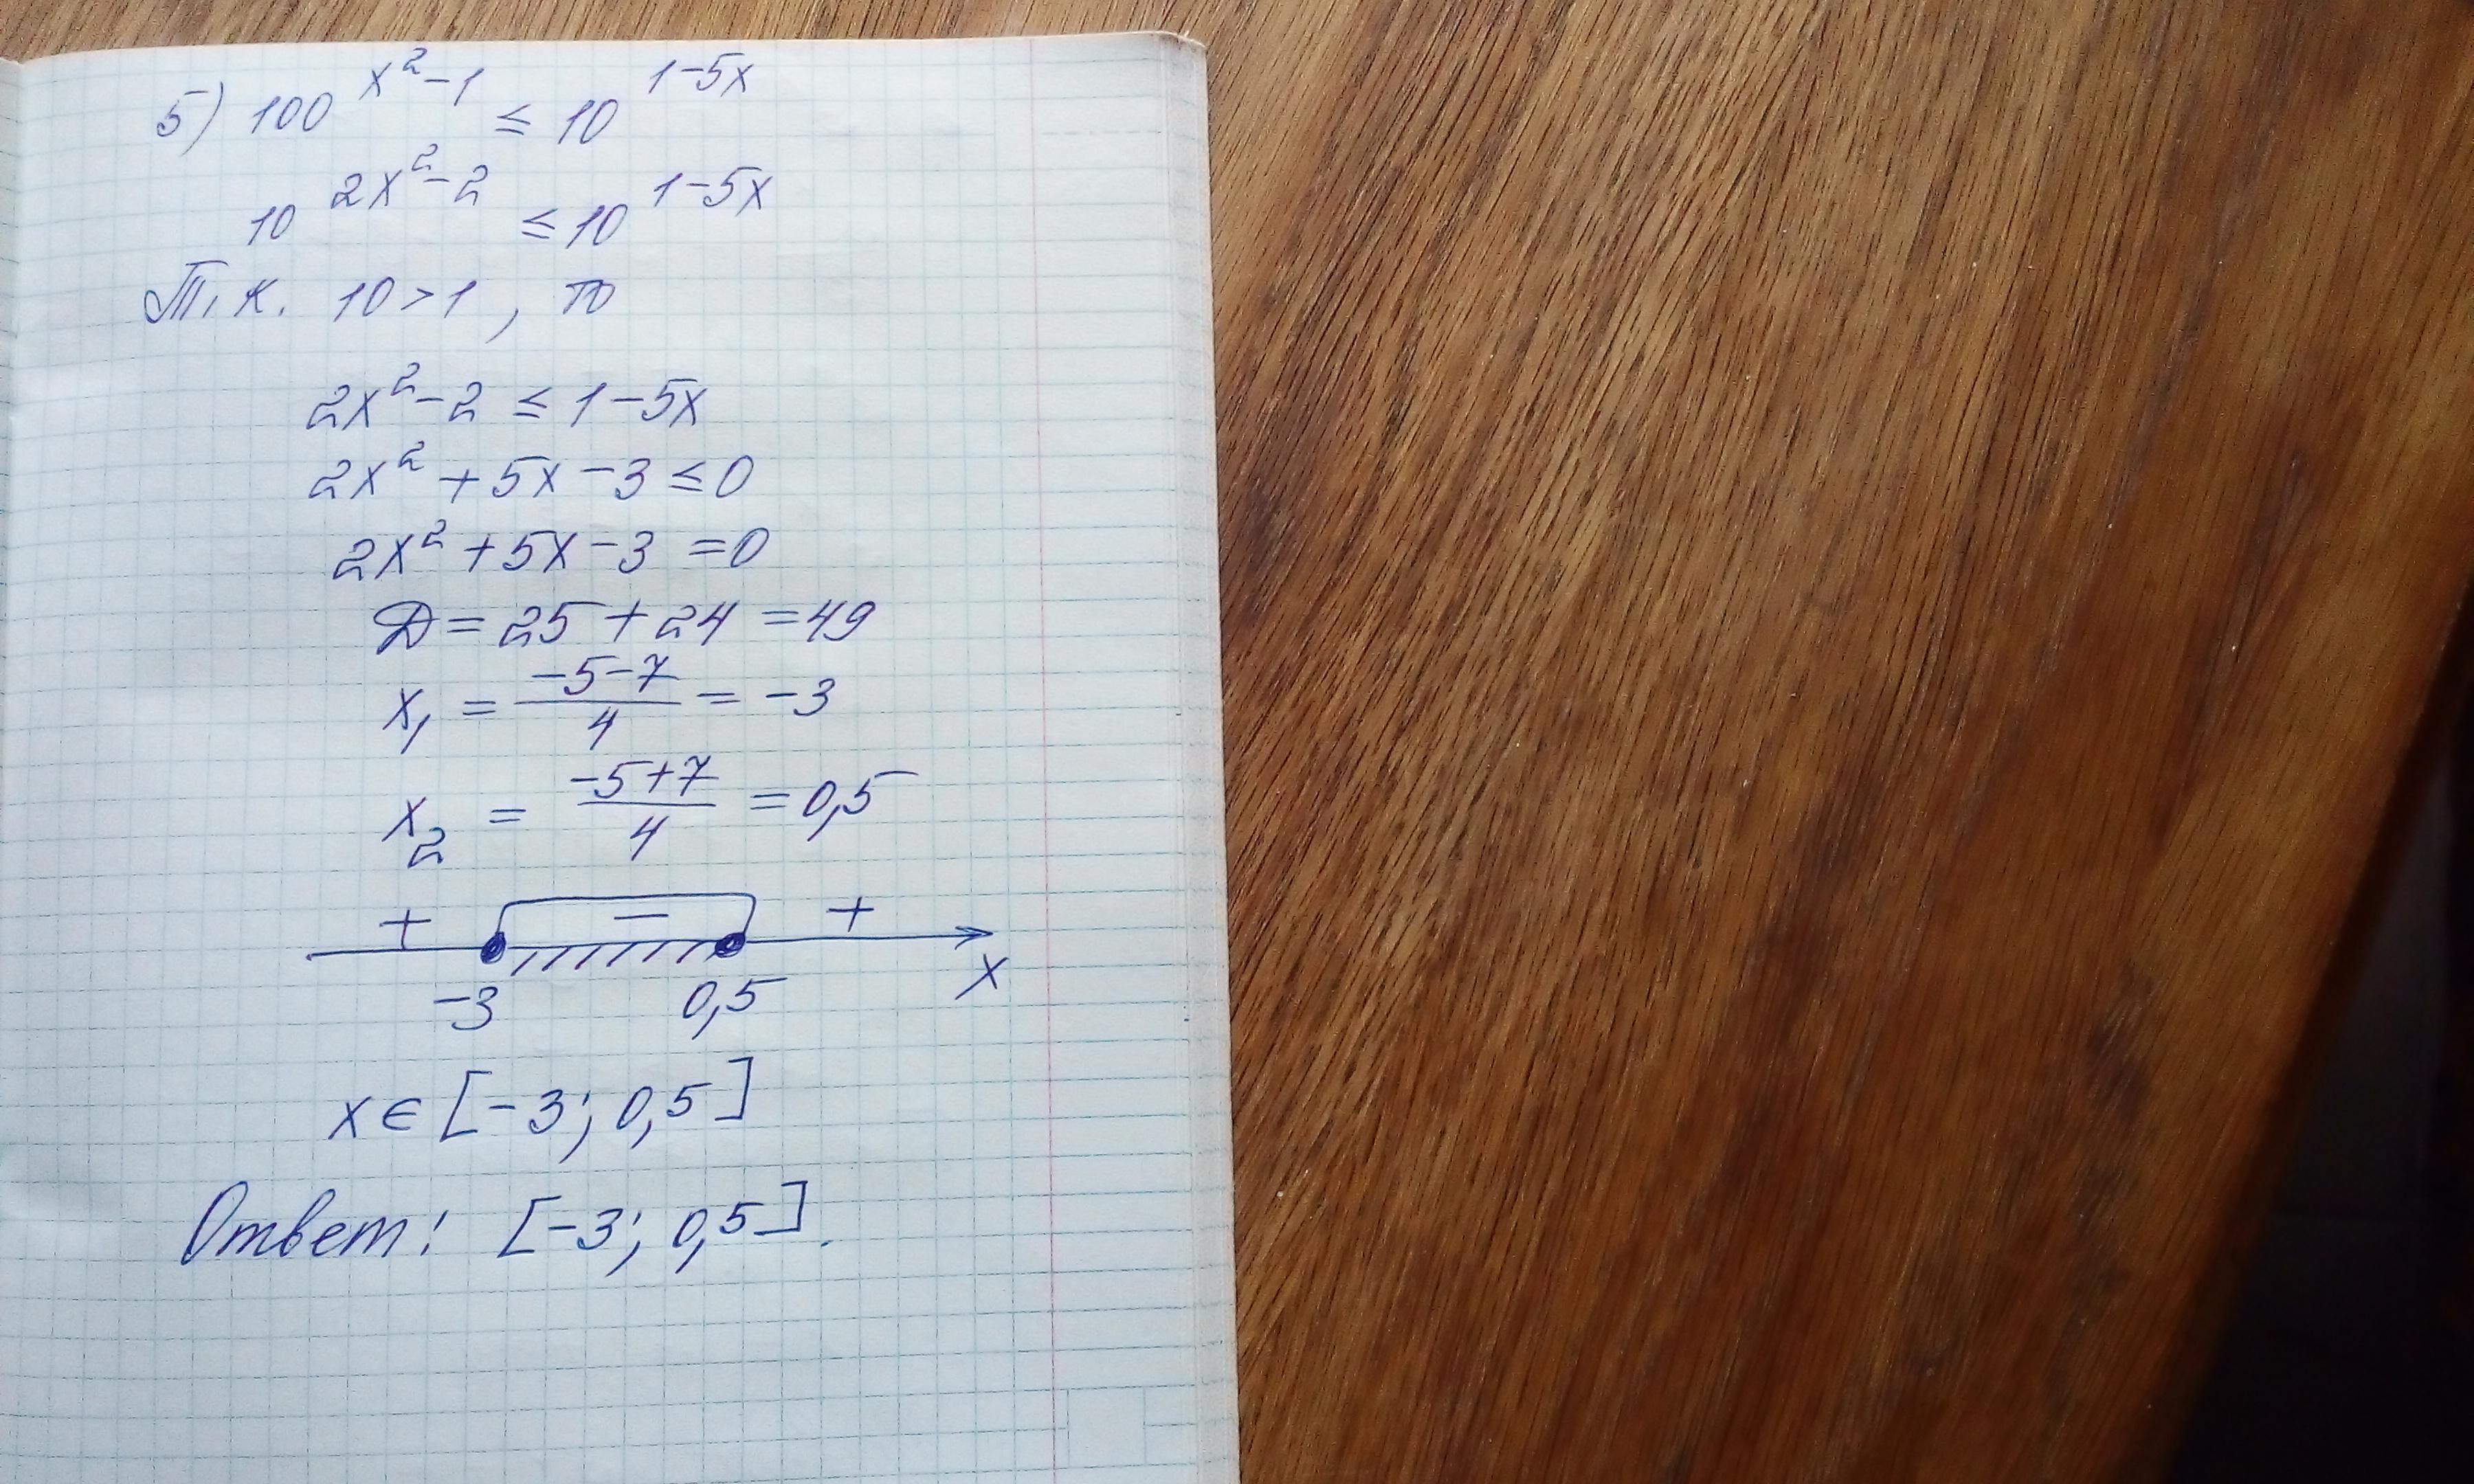 5) 100^(x²-1) ≤ 10^(1-5x)
10^(2x²-2) ≤ 10^(1-5x)
Т.к. 10 > 1, то
2x² - 2 ≤ 1 - 5x
2x² + 5x - 3 ≤ 0
2x² + 5x - 3 = 0
Д = 25 + 24 = 49
x₁ = (-5-7)/4 = -3
x₂ = (-5+7)/4 = 0,5
+ - +
-3 0,5 x
x ∈ [-3; 0,5]
Ответ: [-3; 0,5].